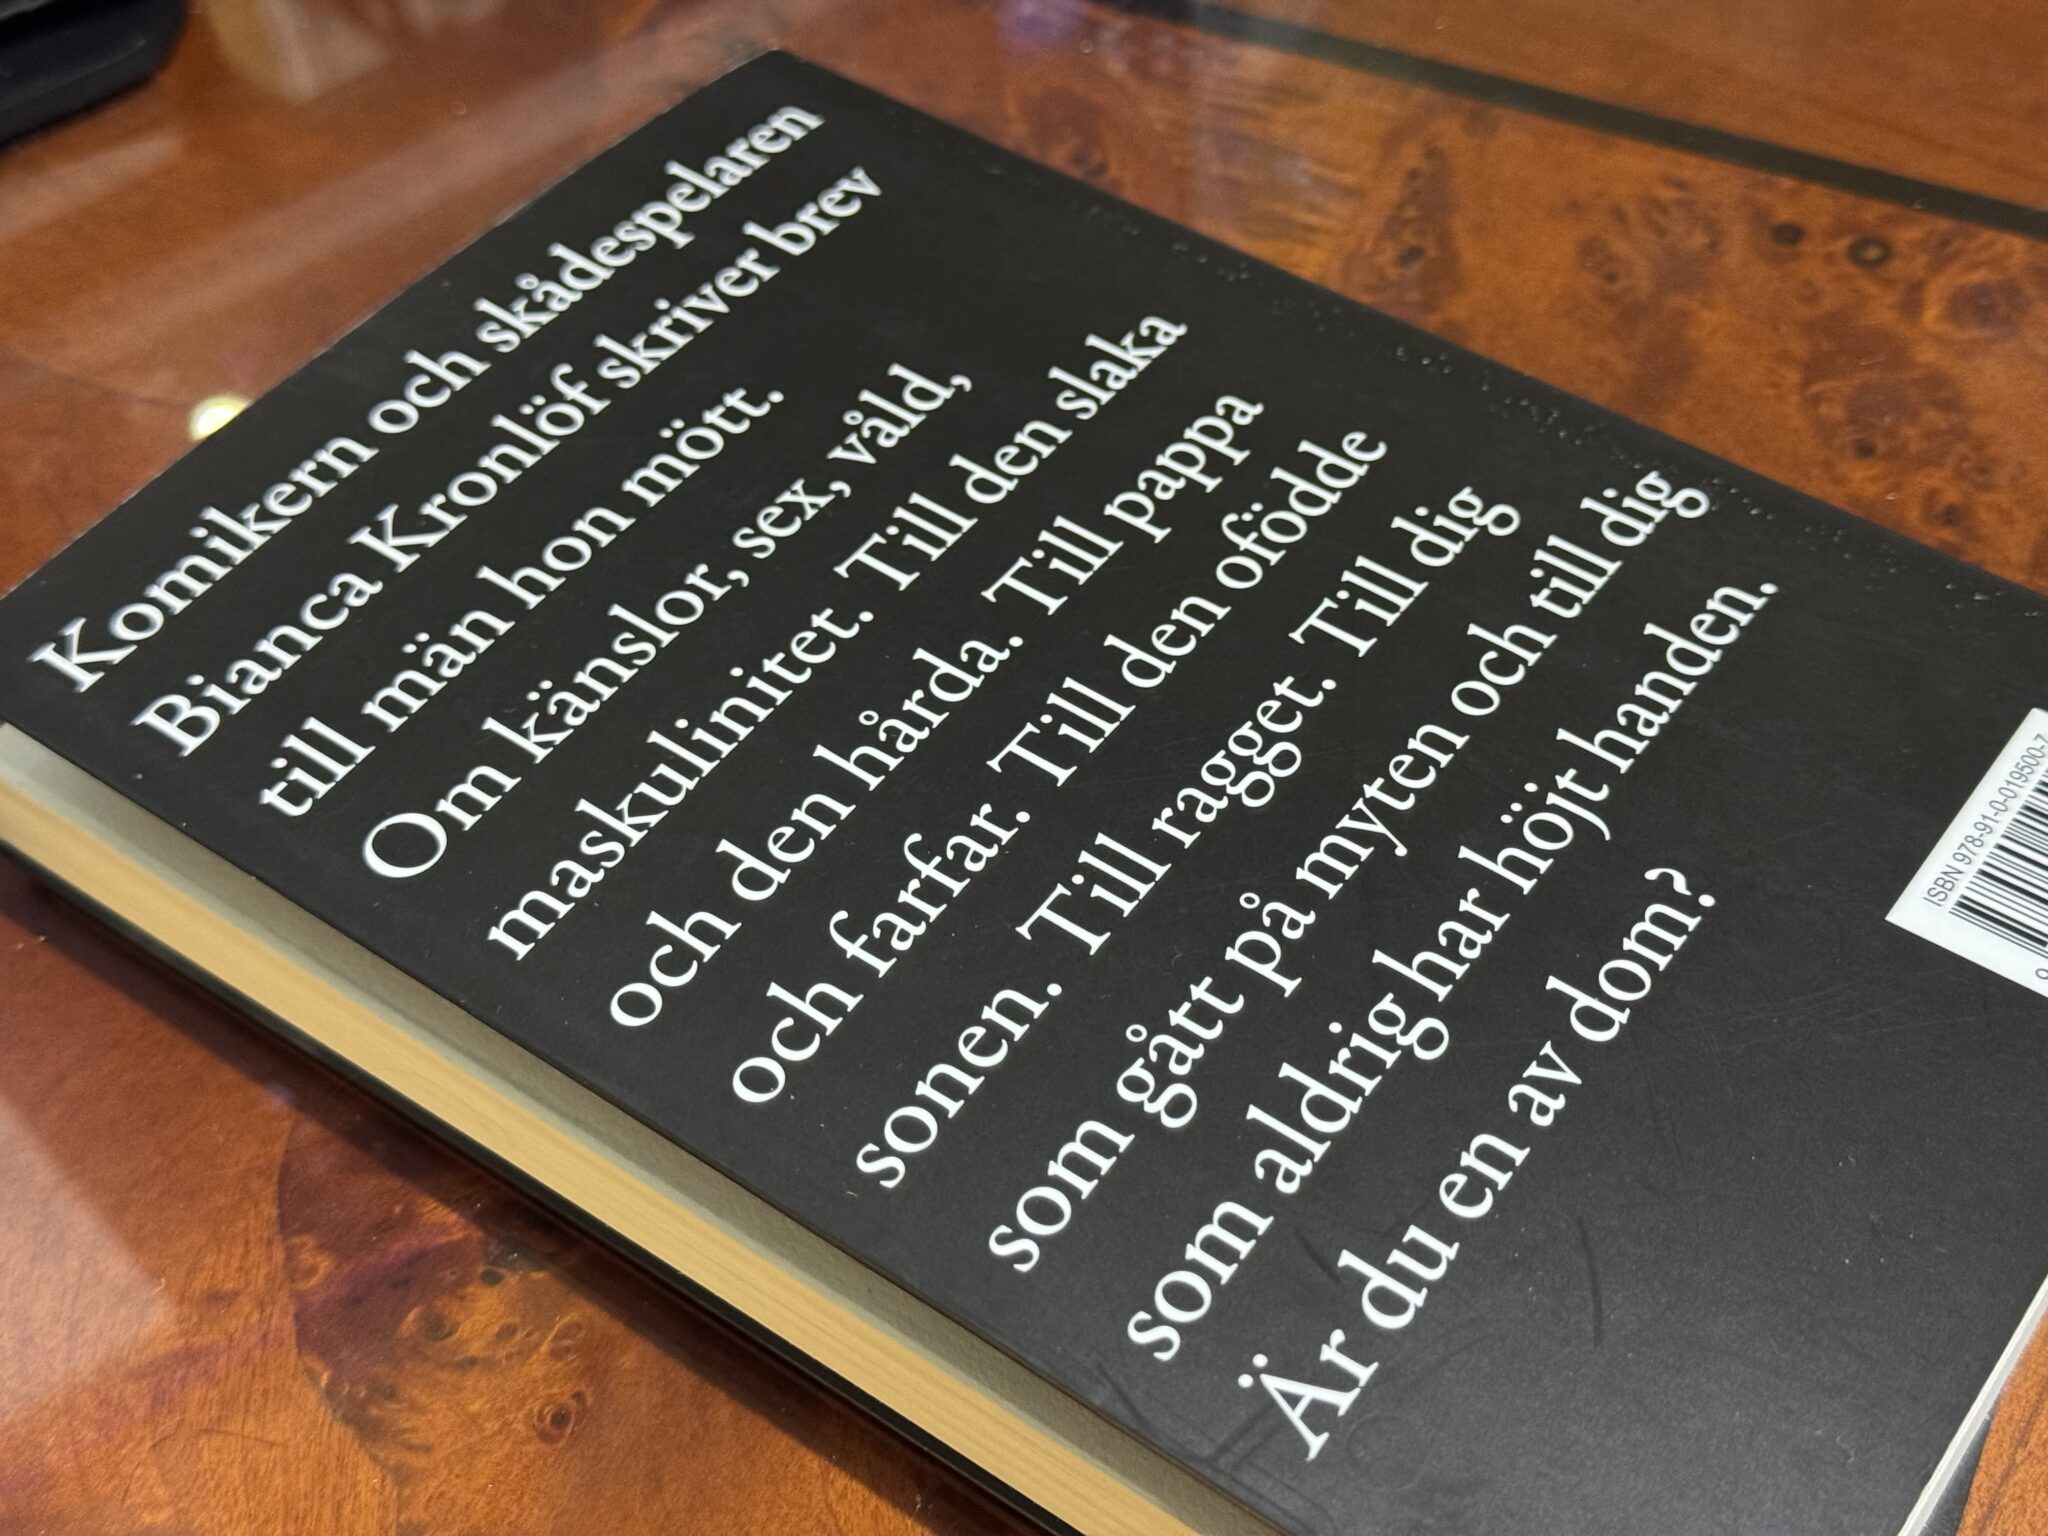 Komikern och skådespelaren
Bianca Kronlöf skriver brev
till män hon mött.
Om känslor, sex, våld,
maskulinitet. Till den slaka
och den hårda. Till pappa
och farfar. Till den ofödde
sonen. Till ragget. Till dig
som gått på myten och till dig
som aldrig har höjt handen.
Är du en av dom?
ISBN 978-91-0-019500-7